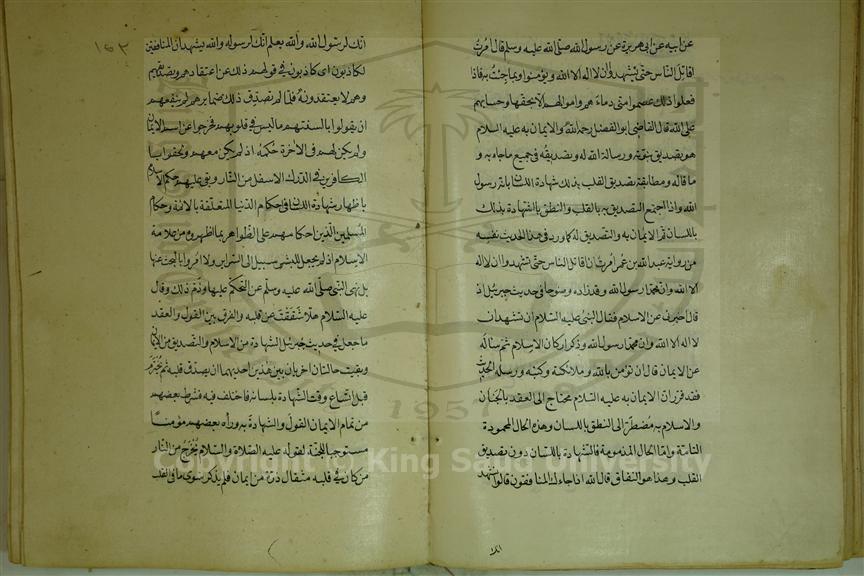 عن ابيه عن ابى هريرة عن رسول الله صلى الله عليه وسلم قال امرت
اقاتل الناس حتى يشهدوا ان لا اله الا الله ويؤمنوا بى وبما جئت به فاذا
فعلوا ذلك عصموا منى دماءهم واموالهم الا بحقها وحسابهم
على الله قال القاضى ابو الفضل رحمه الله والايمان به عليه السلام
هو تصديق نبوته ورسالة الله له وتصديقه فى جميع ما جاء به و
ما قاله ومطابقة تصديق القلب بذلك شهادة اللسان بانه رسول
الله واذا اجتمع التصديق به بالقلب والنطق بالشهادة بذلك
باللسان تم الايمان به والتصديق له كما ورد فى هذا الحديث نفسه
من رواية عبد الله بن عمر امرت ان اقاتل الناس حتى تشهدوا ان لا اله
الا الله وان محمدا رسول الله وقد زاده وضوحا فى حديث جبريل اذ
قال اخبرنى عن الاسلام فقال النبى عليه السلام ان تشهد ان
لا اله الا الله وان محمدا رسول الله وذكر اركان الاسلام ثم سأله
عن الايمان قال ان تؤمن بالله وملائكته وكتبه ورسله الحديث
فقد قرر ان الايمان به عليه السلام محتاج الى العقد بالجنان
والاسلام به مضطر الى النطق باللسان وهذه الحال المحمودة
التامة واما الحال المذمومة فالشهادة باللسان دون تصديق
القلب وهذا هو النفاق قال الله اذا جاءك المنافقون قالوا نشهد
انك
١٦٢
انك لرسول الله والله يعلم انك لرسوله والله يشهد ان المنافقين
لكاذبون اى كاذبون فى قولهم ذلك عن اعتقادهم وتصديقهم
وهم لا يعتقدونه فلما لم تصدق ذلك ضمايرهم لم ينفعهم
ان يقولوا بالسنتهم ما ليس فى قلوبهم فخرجوا عن اسم الايمان
ولم يكن لهم فى الاخرة حكمه اذ لم يكن معهم ولحقوا با
الكافرين فى الدرك الاسفل من النار وبقى عليهم حكم الاسلام
باظهار شهادة اللسان فى احكام الدنيا المتعلقة بالائمة وحكام
المسلمين الذين احكامهم على الظواهر بما اظهروه من علامة
الاسلام اذ لم يجعل للبشر سبيل الى السراير ولا امروا بالبحث عنها
بل نهى النبى صلى الله عليه وسلم عن التحكم عليها وذم ذلك وقال
عليه السلام هلا شققت عن قلبه والفرق بين القول والعقد
ما جعل فى حديث جبريل الشهادة من الاسلام والتصديق من الايمان
وبقيت حالتان اخريان بين هذين احديهما ان يصدق قلبه ثم يخترم
قبل اتساع وقت الشهادة بلسانه فاختلف فيه فشرط بعضهم
من تمام الايمان القول والشهادة به ورآه بعضهم مؤمنا
مستوجبا للجنة لقوله عليه الصلاة والسلام يخرج من النار
من كان فى قلبه مثقال ذرة من ايمان فلم يذكر سوى ما فى القلب
1957
Copyright © King Saud University